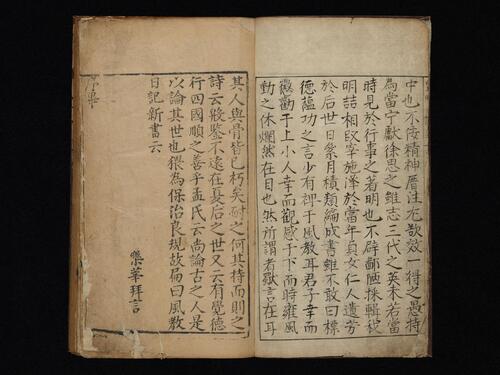 中也不陵精神厝注尤欲效一得之愚持
為當宁獻徐思之雖志三代之英未若當
時見於行事之著明也不辟鄙陋採輯
明詰相臤宰施澤於當年貞女仁人遺芳
於后世日絫月積類編成書雖不敢曰標
德蘊功之言少有裨于風教耳君子幸而
徵勸于上小人幸而觀感于下而時雍風
動之休爛然在目也然所謂者猷言在耳
其人與骨皆已朽矣耐之何其持而則之
詩云殷鋻不遠在夏后之世又云有覺德
行四國順之善乎孟氏云尚論古之人是
以論其世也猥為保治良規故局曰風教
日記新書云
樂葦拜言
序畢